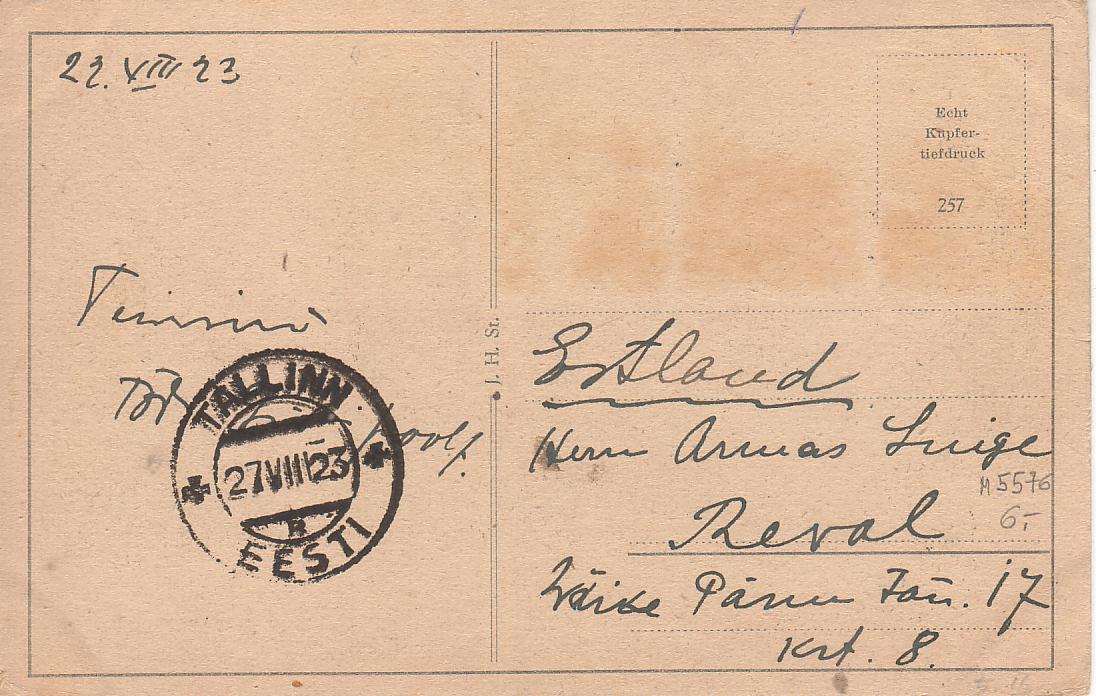 22. VIII 23
Echt
Kupfer-
tiefdruck
257
J. H. St.
TALLINN
27 VIII 23
B
EESTI
Estland
Herrn Armas Luige
M 5576
6.-
Reval
Wäike Pärnu Tän. 17
Krt. 8.